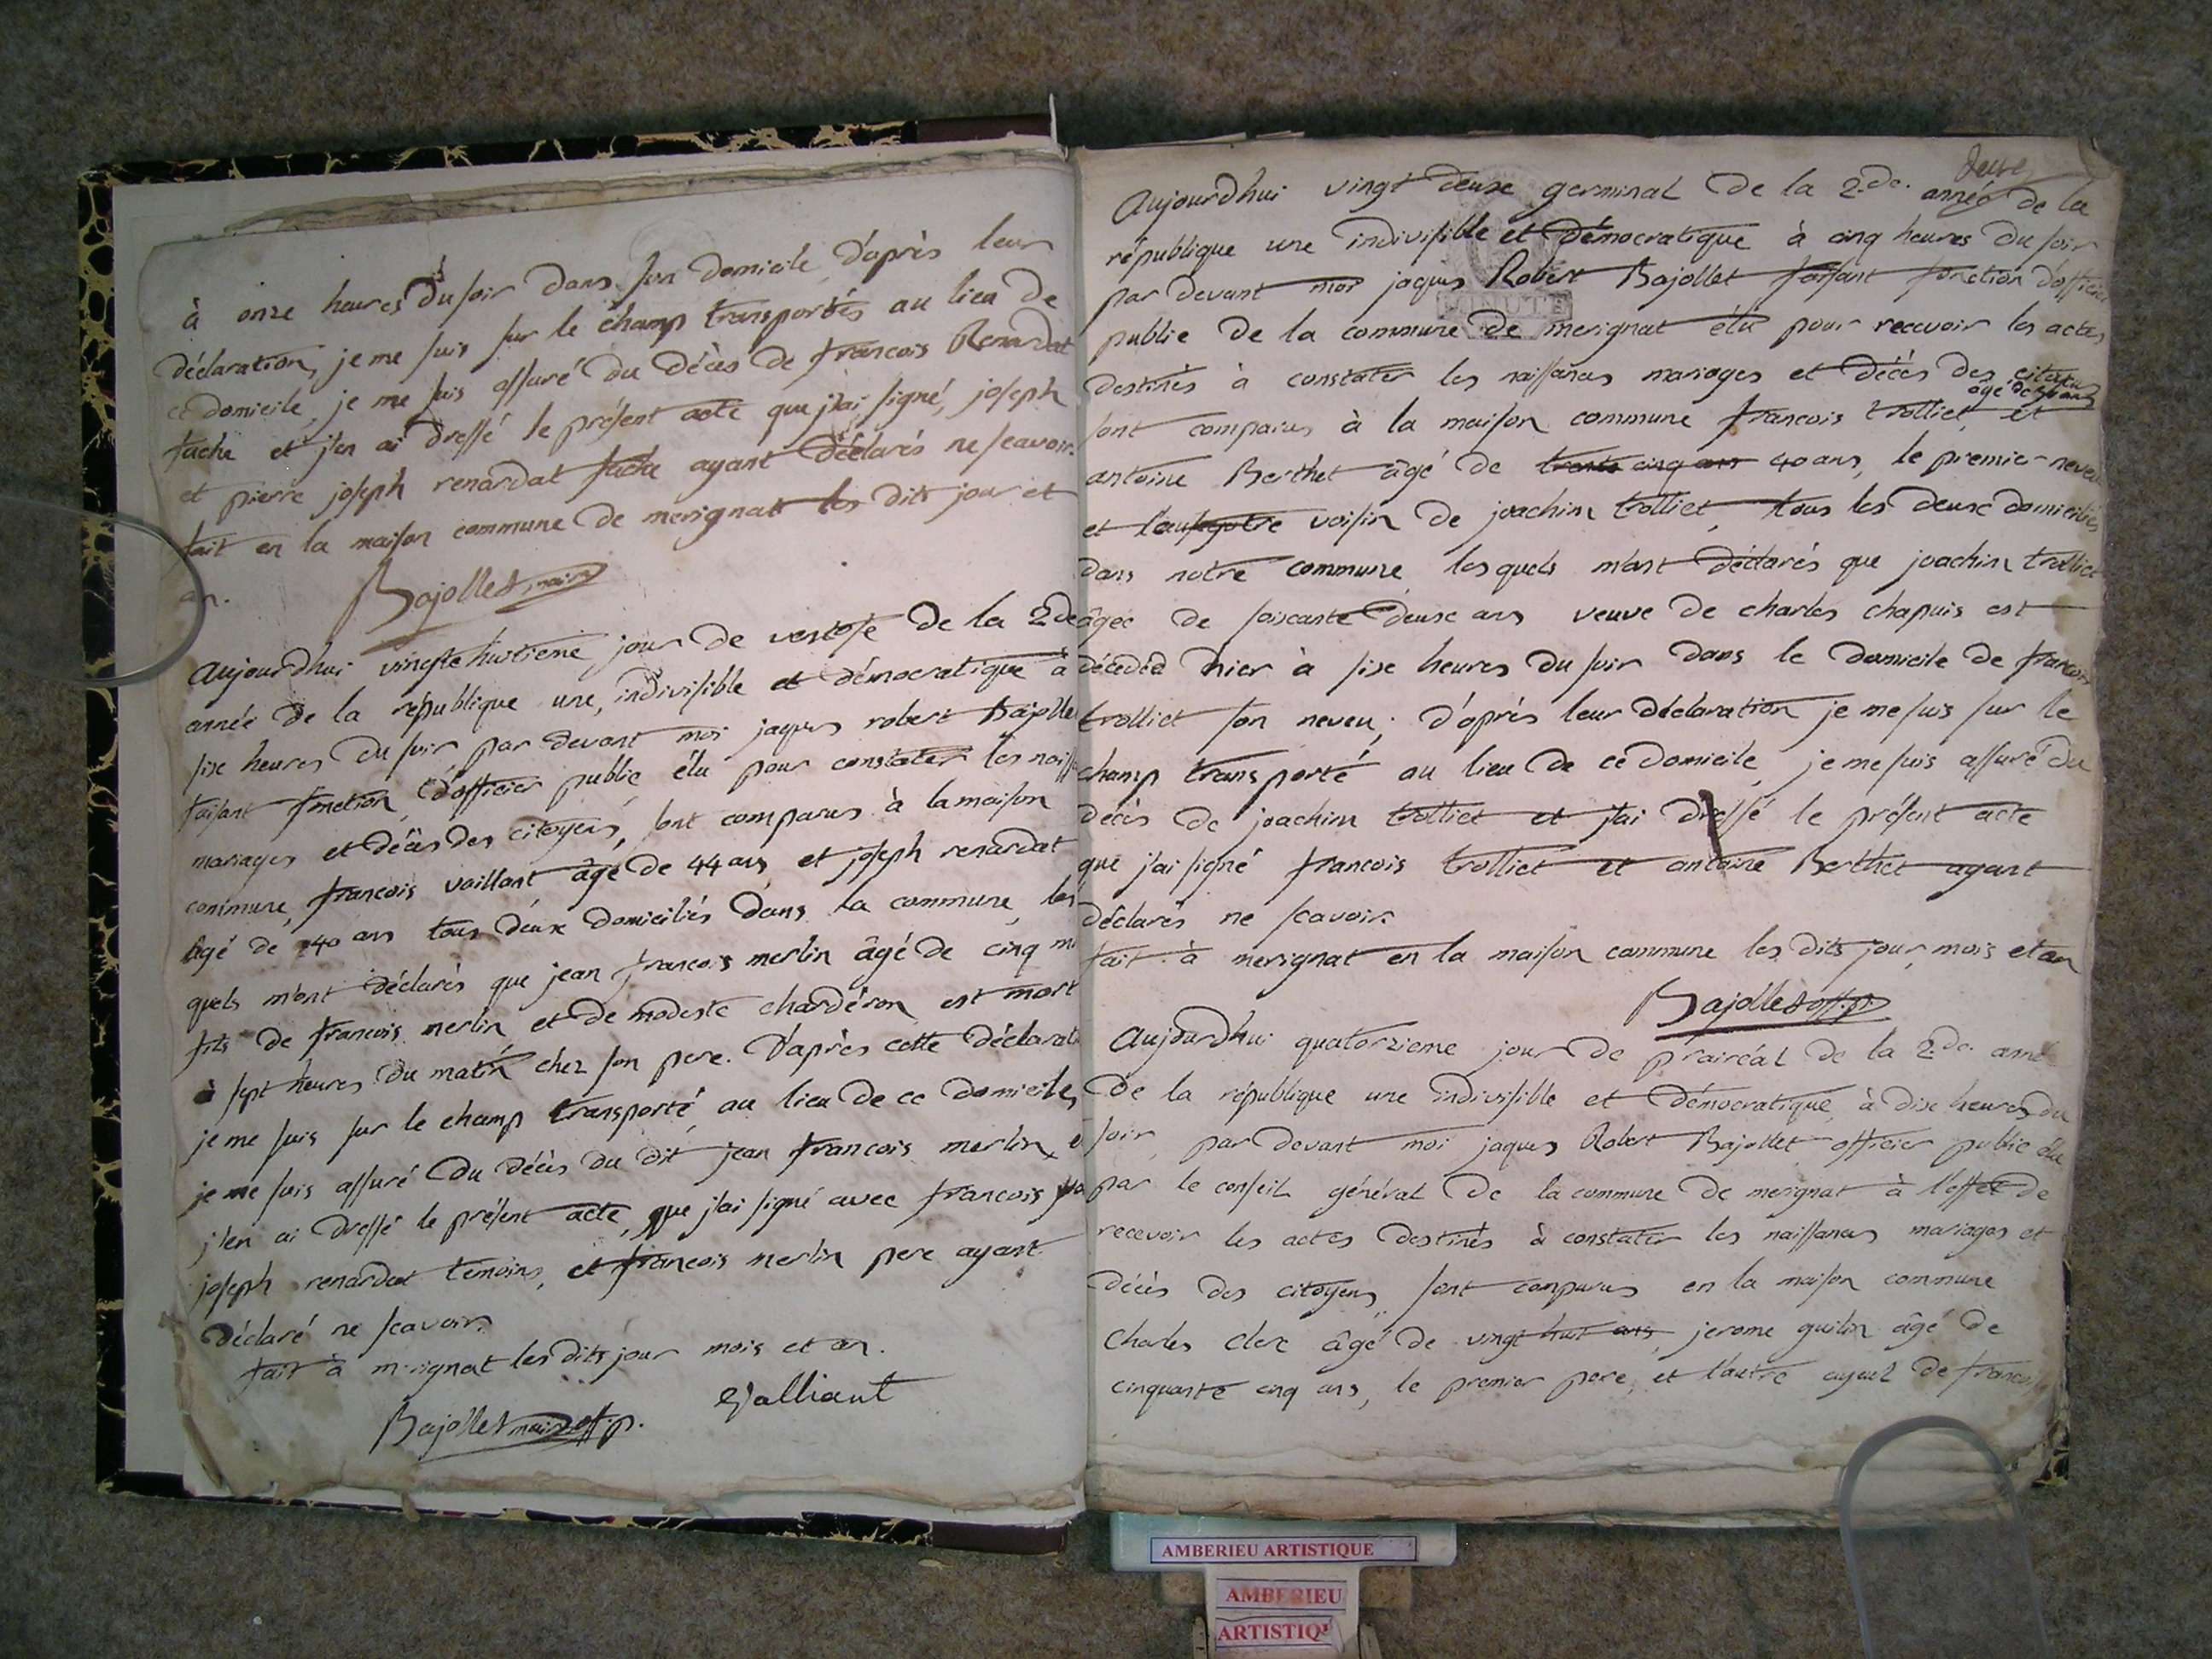 à onze heures du soir dans son domicile, d'après leur
déclaration, je me suis sur le champ transportés au lieu de
ce domicile, je me suis assuré du décès de francois Renardat
fache et j'en ai dressé le présent acte que j'ai signé, joseph
et pierre joseph renardat fache ayant déclarés ne scavoir.
fait en la maison commune de merignat les dits jour et
an.
Bajollet maire
Aujourdhui vingt huitieme jour de ventose de la 2de
année de la république une, indivisible et démocratique à
sixe heures du soir par devant moi jaques robert Bajolle
faisant fonction d'officier public élu pour constater les naissa
mariages et décès des citoyens, sont comparus à la maison
commune, francois vaillant âgé de 44 ans et joseph renardat
âgé de 40 ans tous deux domiciliés dans la commune, les
quels m'ont déclarés que jean francois merlin âgé de cinq m
fils de francois merlin et de modeste chardéron est mort
à sept heures du matin chez son pere. D'après cette déclarati
je me suis sur le champ transporté au lieu de ce domicile,
je me suis assuré du décès du dit jean francois merlin, e
j'en ai dressé le présent acte, que j'ai signé avec francois va
joseph renardat temoins, et francois merlin pere ayant
déclaré ne scavoir.
fait à merignat les dits jour mois et an.
Bajollet maire off. p. Valliant
deuxe
Aujourdhui vingt deuxe germinal de la 2.de. année de la
république une indivisible et démocratique à cinq heures du soir
par devant moi jaques Robert Bajollet faisant fonction d'officier
MINUTE
public de la commune de merignat élu pour recevoir les actes
destinés à constater les naissances mariages et décès des citoyens
âgé de ans
sont comparus à la maison commune francois trolliet, et
antoine Berthet âgé de trente cinq ans 40 ans, le premier neveu
et l'autre voisin de joachin trolliet, tous les deuxe domiciliés
dans notre commune, les quels m'ont déclarés que joachin trolliet
âgée de soixante deuxe ans veuve de charles chapuis est
décédéé hier à sixe heures du soir dans le domicile de francois
trolliet son neveu; d'après leur déclaration je me suis sur le
champ transporté au lieu de ce domicile, je me suis assuré du
décès de joachim trolliet et j'ai dressé le présent acte
que j'ai signé francois trolliet et antoine Berthet ayant
déclarés ne scavoir.
fait à merignat en la maison commune les dits jour, mois et an
Bajollet off. p.
Aujourdhui quatorzieme jour de prairéal de la 2.de. anné
de la république une indivisible et démocratique, à dixe heures du
soir, par devant moi jaques Robert Bajollet officier public élu
par le conseil général de la commune de merignat à l'effet de
recevoir les actes destinés à constater les naissances mariages et
décès des citoyens, sont comparus en la maison commune
Charles clerc âgé de vingt huit ans, jerome guilin âgé de
cinquante cinq ans, le premier pere, et l'autre ayeul de francois
AMBERIEU ARTISTIQUE
AMBERIEU
ARTISTIQU